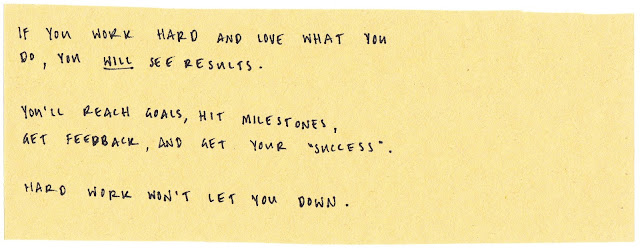 IF YOU WORK HARD AND LOVE WHAT YOU
DO, YOU WILL SEE RESULTS.
YOU'LL REACH GOALS, HIT MILESTONES,
GET FEEDBACK, AND GET YOUR "SUCCESS".
HARD WORK WON'T LET YOU DOWN.